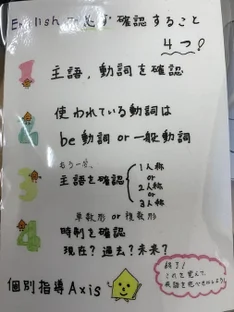 Englishで必ず確認すること
4つ!
1 主語,動詞を確認
2 使われている動詞は
be動詞 or 一般動詞
もう一度、
3 主語を確認
1人称
or
2人称
or
3人称
単数形 or 複数形
4 時制を確認
現在?過去?未来?
個別指導Axis
終了!
これを覚えて
英語を